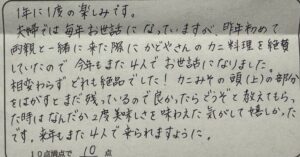 1年に1度の楽しみです。
夫婦では毎年お世話になっていますが、昨年初めて
両親と一緒に来た際にかどやさんのカニ料理を絶賛
していたので今年もまた4人でお世話になりました。
相変わらずどれも絶品でした!カニみその頭(上)の部分
をはがすとまだ残っているので良かったらどうぞと教えてもら
た時はなんだか2度美味しさを味わえた気がして嬉しかった
です。来年もまた4人で来られますように。
10点満点で 10 点